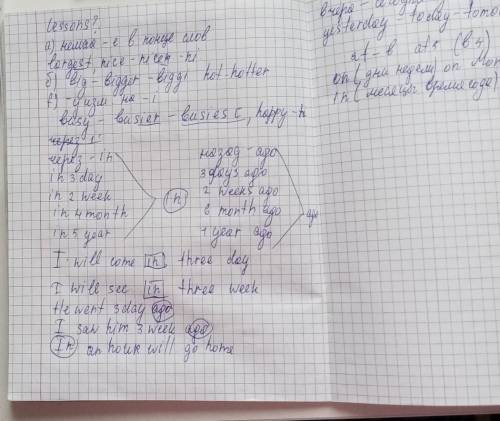 Lessons?
а) немая - е в конце слов
largest nice - nicer - ni
б) big - bigger - biggi hot-hotter
busy - busier - busiest, happy - h
через - in
in 3 day
in 2 week
in 4 month
in 5 year
in
назад - ago
3 days ago
2 weeks ago
month ago
1 year ago
ago
I will come in three day
I will see in three week
He went 3 day ago
I saw him 3 week ago
In an hour will go home
yesterday today - tomo
at - в at 4 (в 4)
on (дни недели) on Mon
in (месяцы время года)